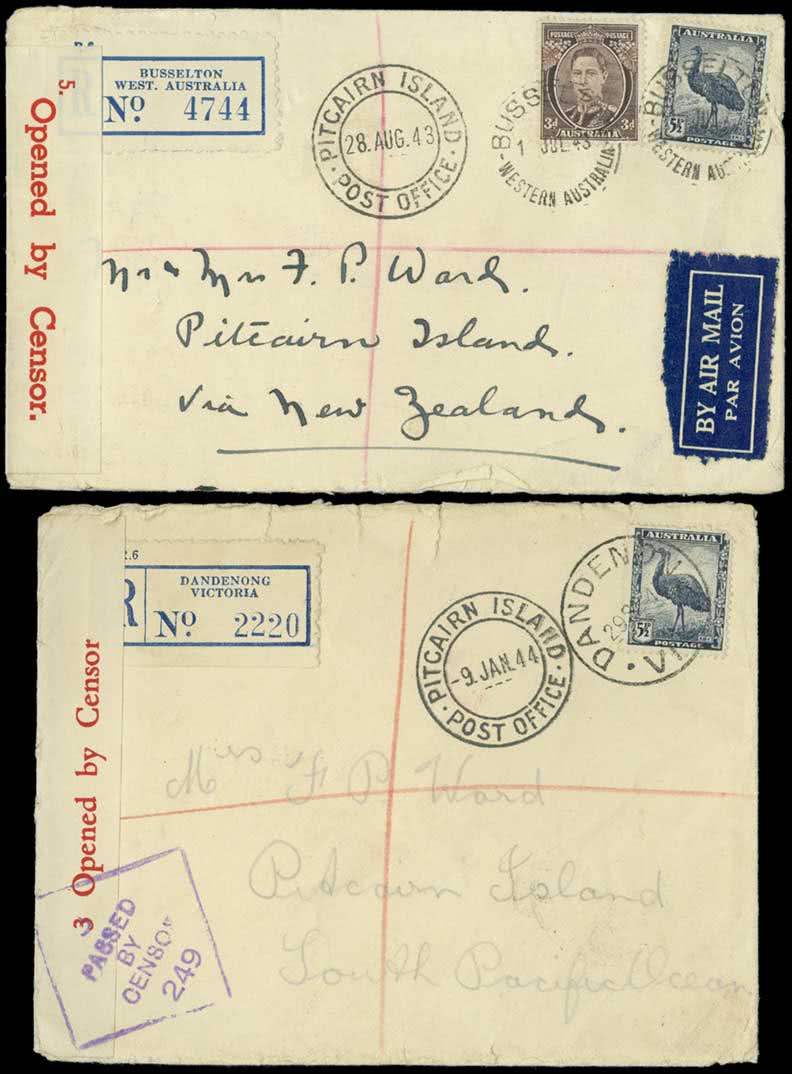 R.6
BUSSELTON
WEST. AUSTRALIA
R Nº 4744
5. Opened by Censor.
PITCAIRN ISLAND
28. AUG. 43
POST OFFICE
POSTAGE POSTAGE
3d 3d
AUSTRALIA
BUSS
1 JUL 43
WESTERN AUSTRALIA
AUSTRALIA
5½D
POSTAGE
BUSSELTON
WESTERN AUS
Mr & Mrs F. P. Ward.
Pitcairn Islands.
Via New Zealand.
BY AIR MAIL
PAR AVION
R.6
DANDENONG
VICTORIA
R Nº 2220
3 Opened by Censor
PITCAIRN ISLAND
-9. JAN. 44
POST OFFICE
DANDENON
VI
AUSTRALIA
5½D
POSTAGE
F P Ward
Pitcairn Island
South Pacific Ocean
PASSED
BY
CENSOR
249